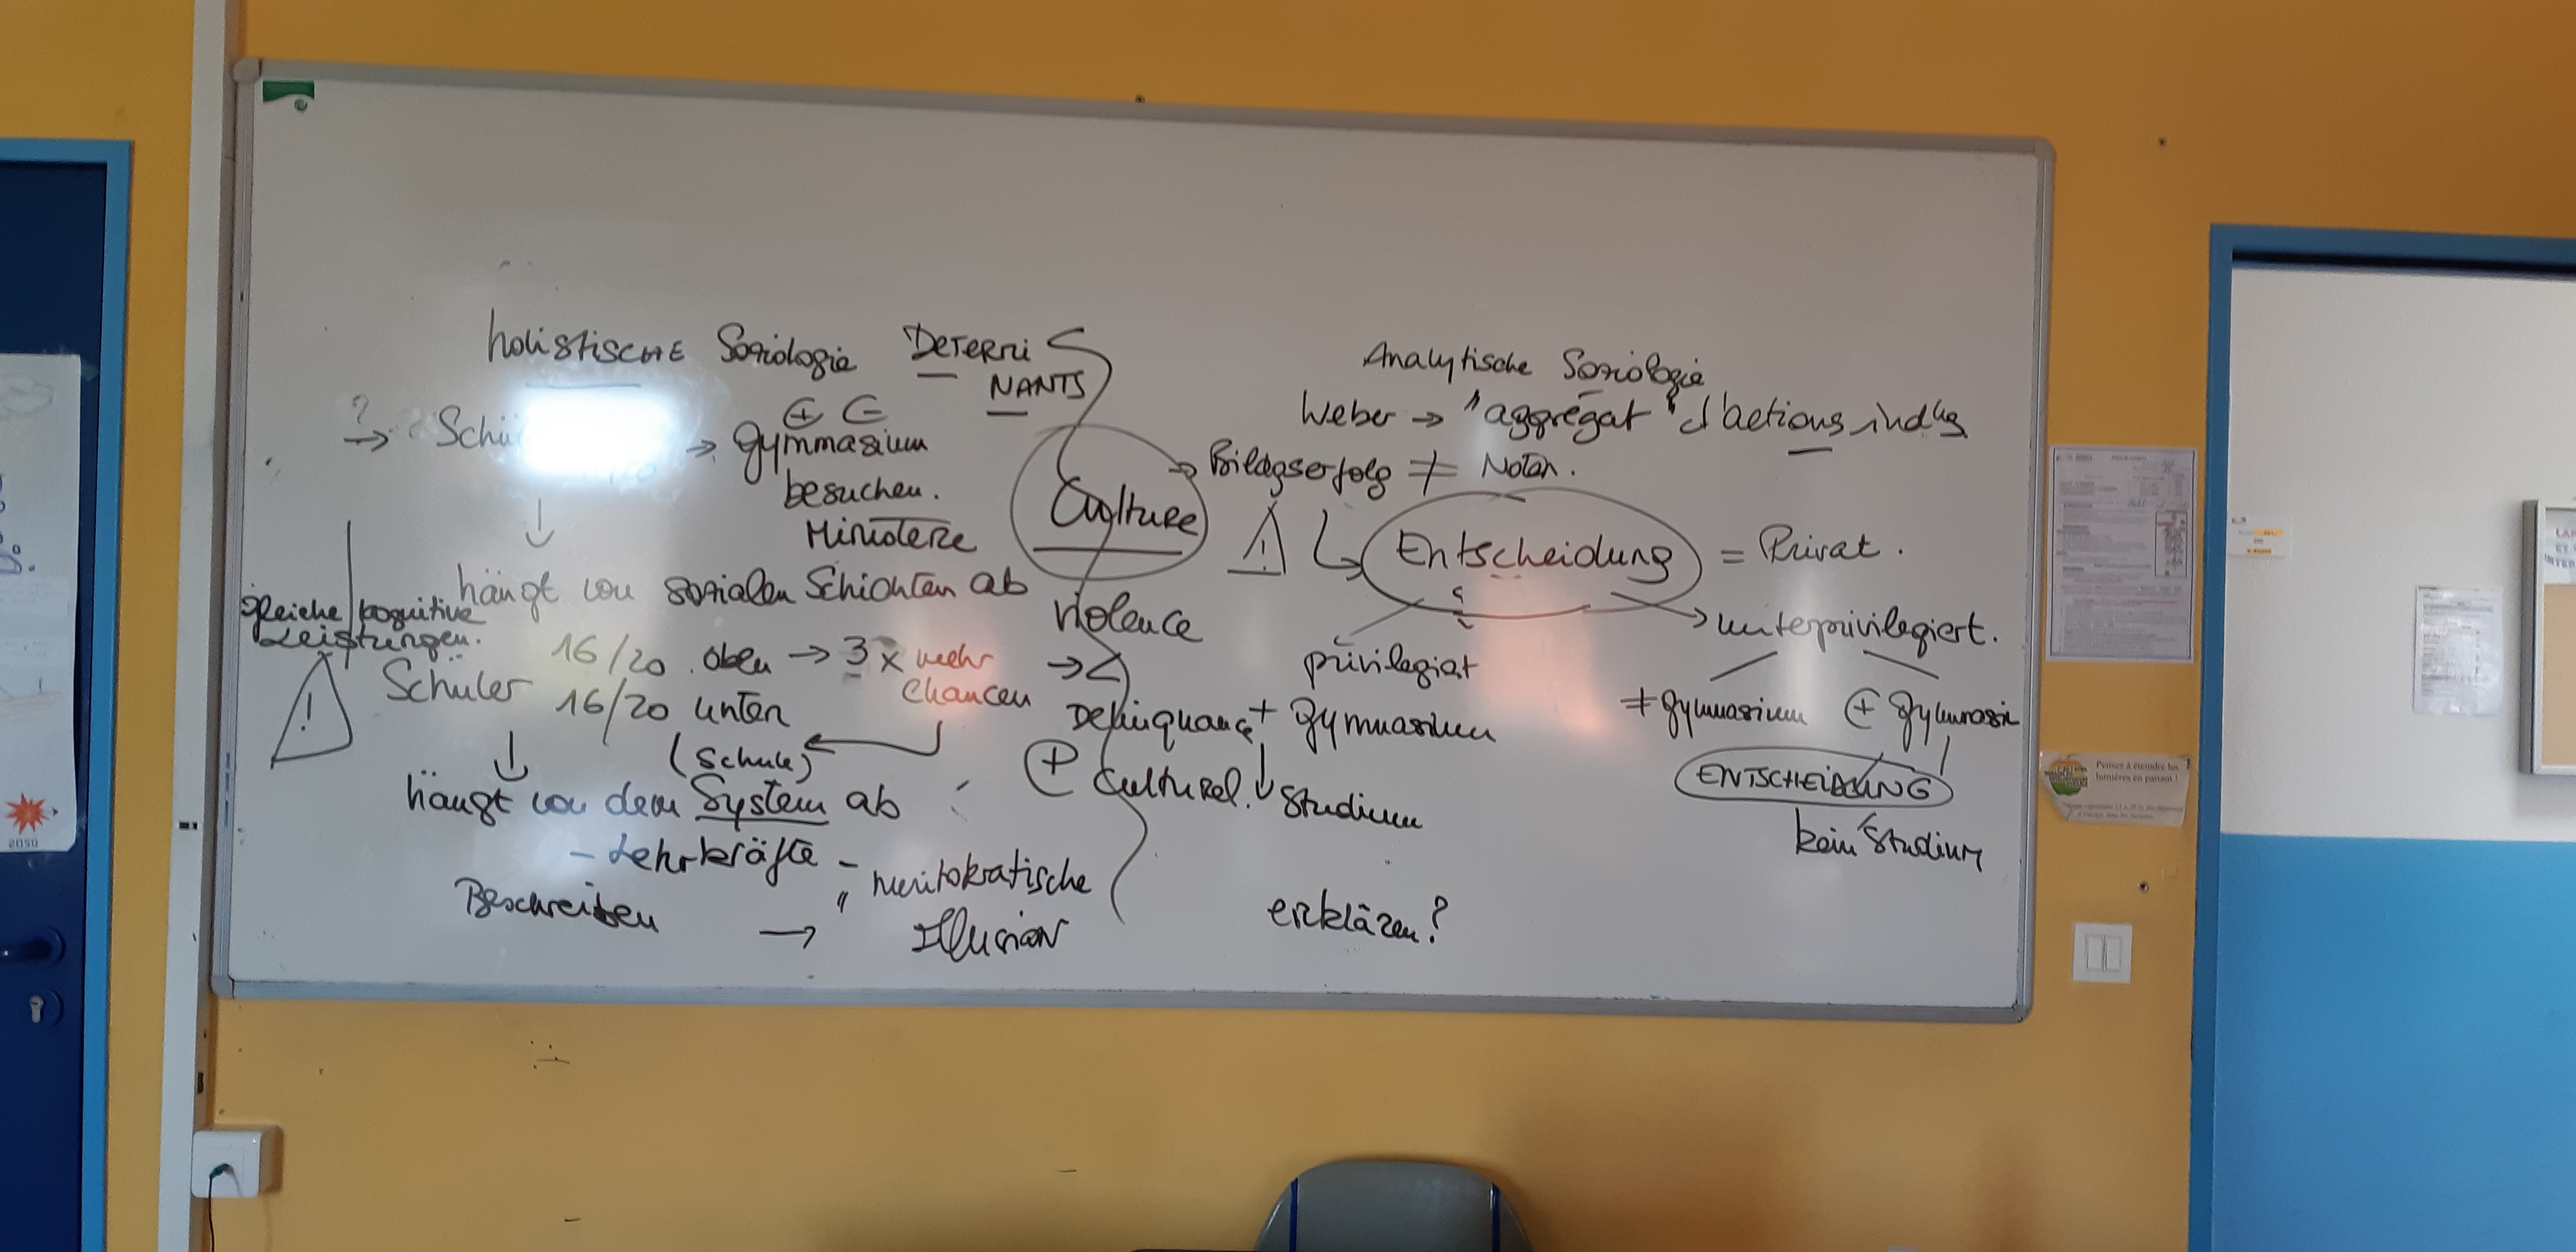 holistische Soziologie DETERMI
NANTS
? → Schü → Gymnasium
besuchen.
Ministere
hängt von sozialen Schichten ab
gleiche kognitive
Leistungen.
Schüler 16/20 oben → 3 x mehr
Chancen
16/20 unten
(Schule)
hängt von dem System ab
- Lehrkräfte -
Beschreiben → " meritokratische
Illusion
Culture
violence
→
Delinquance
+ Culturel.
Analytische Soziologie
Weber → "aggrégat" d'actions indles
→ Bildgserfolg ≠ Noten.
! Entscheidung = Privat.
privilegiert
+ Gymnasium
↓ Studium
→ unterprivilegiert.
≠ Gymnasium + Gymnasi
ENTSCHEIDUNG
kein Studium
erklären?
2050
Pensez à éteindre les
lumières en partant !